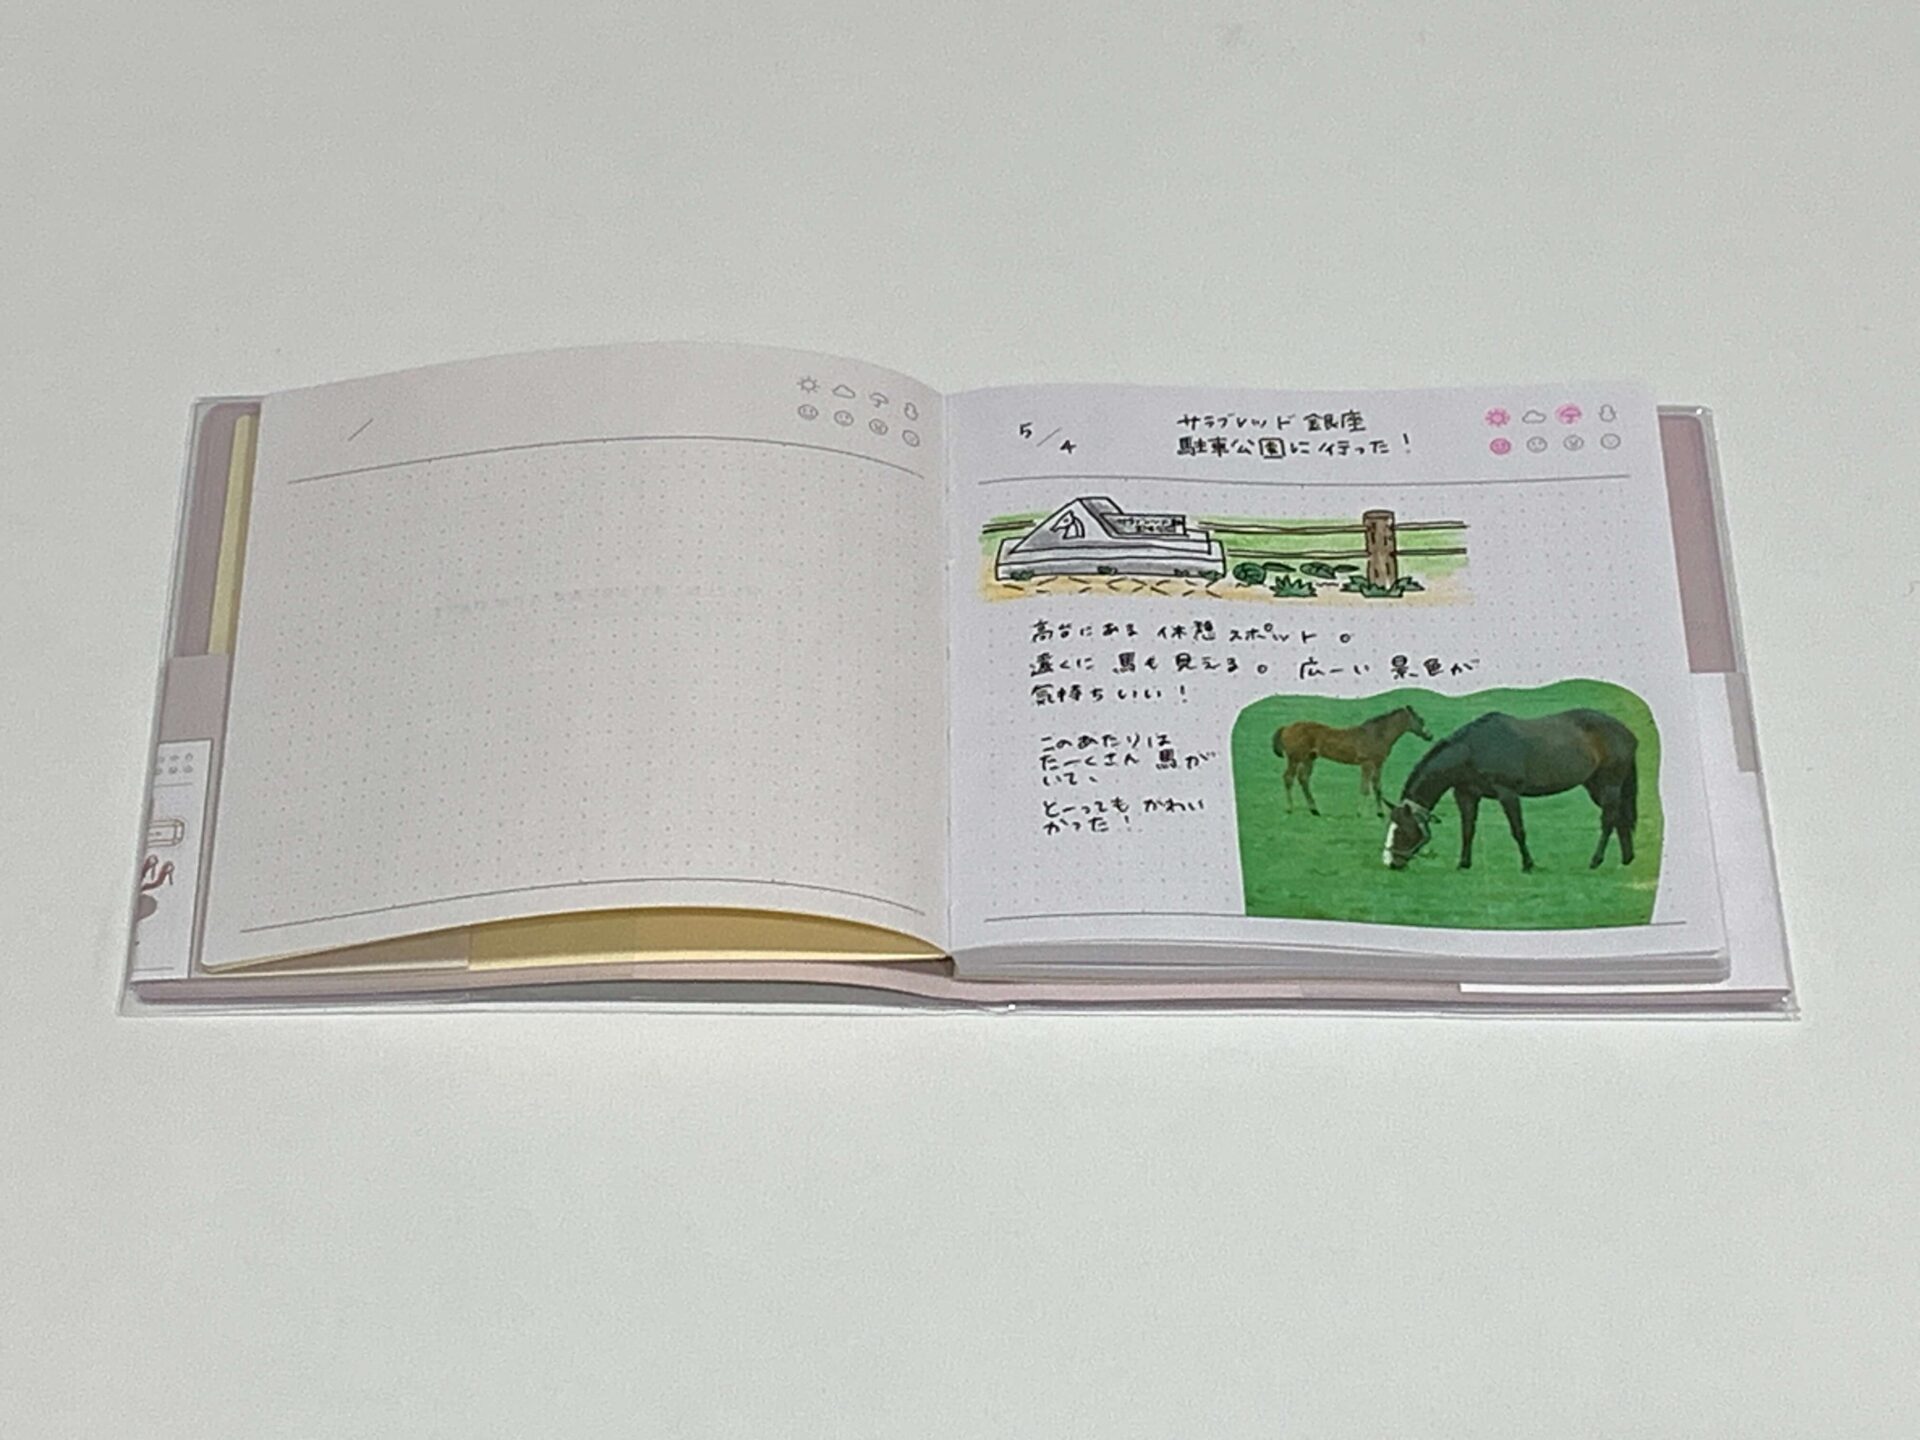 5/4
サラブレッド銀座
駐車公園に行った！
高台にある 休憩 スポット。
遠くに 馬も見える。広ーい 景色が
気持ちいい！
このあたりは
たーくさん 馬が
いて、
とーっても かわい
かった！